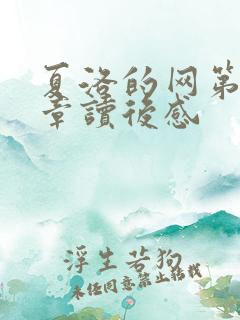 夏洛的网第
章讀後感
浮生若狗
未经同意禁止转载